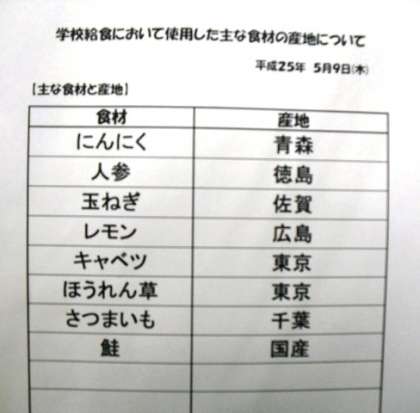 学校給食において使用した主な食材の産地について
平成25年 5月9日(木)
【主な食材と産地】
食材 産地
にんにく 青森
人参 徳島
玉ねぎ 佐賀
レモン 広島
キャベツ 東京
ほうれん草 東京
さつまいも 千葉
鮭 国産